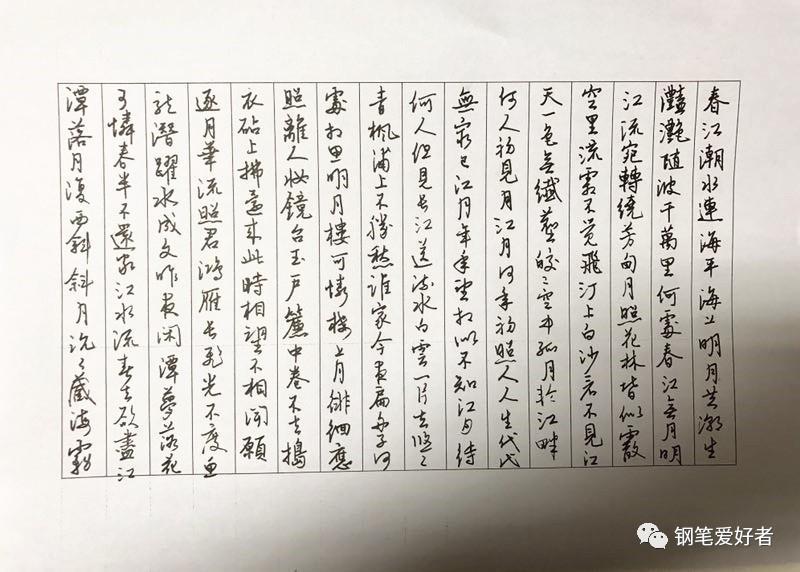 春江潮水連海平海上明月共潮生
灩灩随波千萬里何處春江無月明
江流宛轉繞芳甸月照花林皆似霰
空里流霜不觉飛汀上白沙看不見江
天一色無纖塵皎々空中孤月轮江畔
何人初見月江月何年初照人人生代代
無窮已江月年年望相似不知江月待
何人但見长江送流水白雲一片去悠々
青楓浦上不勝愁谁家今夜扁舟子何
處相思明月樓可憐楼上月徘徊應
照離人妆鏡台玉戶簾中卷不去搗
衣砧上拂還来此時相望不相闻願
逐月華流照君鴻雁长飛光不度鱼
龍潛躍水成文昨夜闲潭夢落花
可憐春半不還家江水流春去欲盡江
潭落月復西斜斜月沉々藏海霧
钢笔爱好者